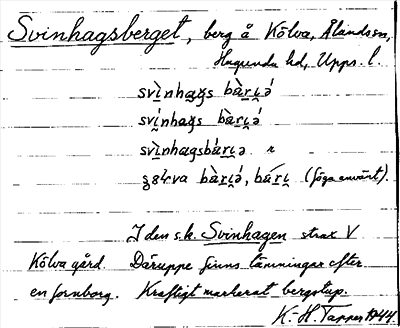 Svinhagsberget, berg å Kölva, Ålandssn,
Hagunda hd, Upps. l.
svìnhaɡ̯s bàri̯ǝ́
svínhaɡ̯s bàri̯ǝ́
svìnhagsbári̯ǝ "
bàri̯ǝ́, bári̯ (föga använt).
I den s.k. Svinhagen strax V
Kölva gård. Däruppe finns lämningar efter
en fornborg. Kraftigt markerat bergstup.
K.-H. Tapper 1944.